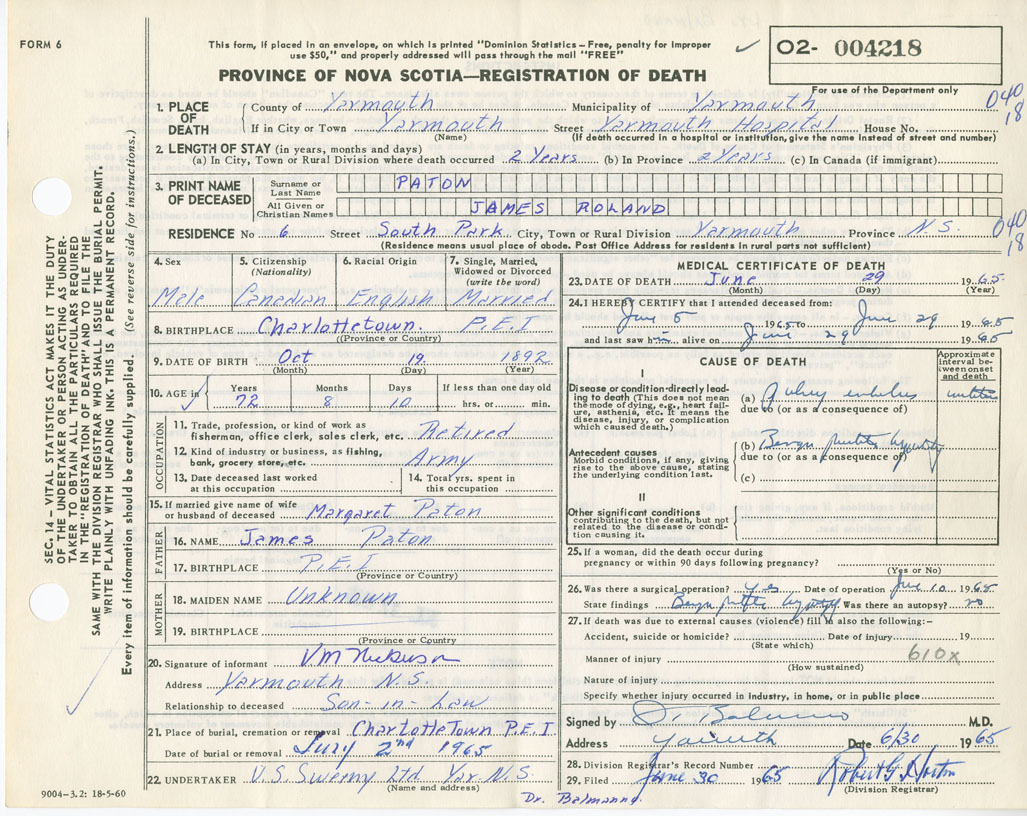 FORM 6
This form, if placed in an envelope, on which is printed "Dominion Statistics—Free, penalty for improper
use $50," and properly addressed will pass through the mail "FREE"
02- 004218
PROVINCE OF NOVA SCOTIA—REGISTRATION OF DEATH
For use of the Department only
040
18
1. PLACE OF DEATH
County of Yarmouth Municipality of Yarmouth
If in City or Town Yarmouth Street Yarmouth Hospital House No.
(Name) (If death occurred in a hospital or institution, give the name instead of street and number)
2. LENGTH OF STAY (in years, months and days)
(a) In City, Town or Rural Division where death occurred 2 Years (b) In Province 2 Years (c) In Canada (if immigrant)
3. PRINT NAME OF DECEASED
Surname or Last Name PATON
All Given or Christian Names JAMES ROLAND
RESIDENCE No 6 Street South Park City, Town or Rural Division Yarmouth Province N.S.
040
18
(Residence means usual place of abode. Post Office Address for residents in rural parts not sufficient)
4. Sex
Mele
5. Citizenship (Nationality)
Canedian
6. Racial Origin
English
7. Single, Married, Widowed or Divorced (write the word)
Married
8. BIRTHPLACE Charlottetown. P.E.I
(Province or Country)
9. DATE OF BIRTH Oct 19 1892
(Month) (Day) (Year)
10. AGE in
Years Months Days If less than one day old
72 8 10 hrs. or min.
OCCUPATION
11. Trade, profession, or kind of work as
fisherman, office clerk, sales clerk, etc. Retired
12. Kind of industry or business, as fishing,
bank, grocery store, etc. Army
13. Date deceased last worked
at this occupation
14. Total yrs. spent in
this occupation
15. If married give name of wife
or husband of deceased Margaret Paton
FATHER
16. NAME James Paton
17. BIRTHPLACE P.E.I
(Province or Country)
MOTHER
18. MAIDEN NAME Unknown
19. BIRTHPLACE
(Province or Country)
20. Signature of informant
Address Yarmouth N.S.
Relationship to deceased Son-in-Law
21. Place of burial, cremation or removal CharlotteTown P.E.I
Date of burial or removal July 2nd 1965
22. UNDERTAKER V.S. Sweeny Ltd Yar. N.S.
(Name and address)
9004-3.2: 18-5-60
MEDICAL CERTIFICATE OF DEATH
23. DATE OF DEATH June 29 1965
(Month) (Day) (Year)
24. I HEREBY CERTIFY that I attended deceased from:
June 5 1965 to June 29 1965
and last saw him alive on June 29 1965
CAUSE OF DEATH
Approximate interval between onset and death
I
Disease or condition directly leading to death (This does not mean the mode of dying, e.g., heart failure, asthenia, etc. It means the disease, injury, or complication which caused death.)
(a)
due to (or as a consequence of)
Antecedent causes
Morbid conditions, if any, giving rise to the above cause, stating the underlying condition last.
(b)
due to (or as a consequence of)
(c)
II
Other significant conditions
contributing to the death, but not related to the disease or condition causing it.
25. If a woman, did the death occur during
pregnancy or within 90 days following pregnancy?
(Yes or No)
26. Was there a surgical operation? yes Date of operation June 10 1965
State findings Was there an autopsy? no
27. If death was due to external causes (violence) fill in also the following:—
Accident, suicide or homicide? Date of injury 19
(State which)
Manner of injury 610X
(How sustained)
Nature of injury
Specify whether injury occurred in industry, in home, or in public place
Signed by M.D.
Address Yarmouth Date 6/30 1965
28. Division Registrar's Record Number
29. Filed June 30 1965 Robert G Horton
(Division Registrar)
Dr. Balmanno
SEC. 14—VITAL STATISTICS ACT MAKES IT THE DUTY
OF THE UNDERTAKER OR PERSON ACTING AS UNDER-
TAKER TO OBTAIN ALL THE PARTICULARS REQUIRED
IN THE "REGISTRATION OF DEATH" AND TO FILE THE
SAME WITH THE DIVISION REGISTRAR WHO SHALL ISSUE THE BURIAL PERMIT.
WRITE PLAINLY WITH UNFADING INK—THIS IS A PERMANENT RECORD.
Every item of information should be carefully supplied. (See reverse side for instructions.)